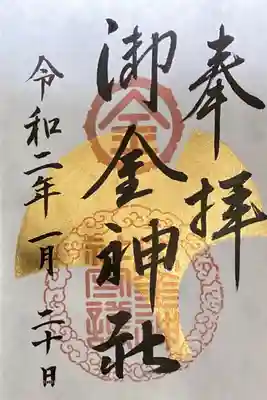 奉拝
御金神社
令和二年一月二十日